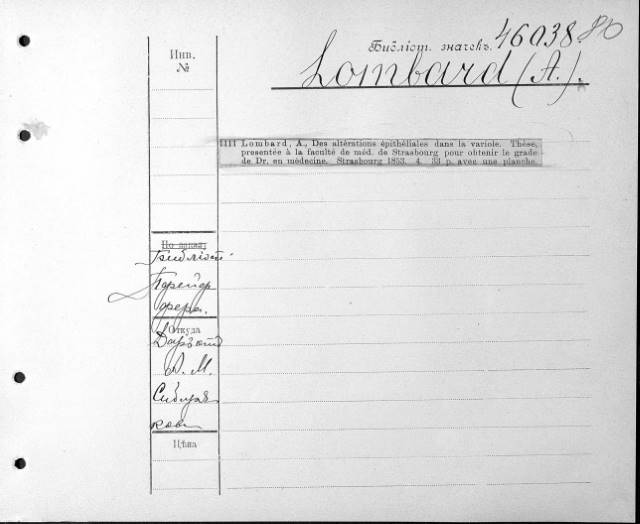 Библіот. значекъ. 46038.
Lombard (A.).
Инв.
№
1111 Lombard, A., Des altérations épithéliales dans la variole. Thèse,
presentée à la faculté de méd. de Strasbourg pour obtenir le grade
de Dr. en médecine. Strasbourg 1853. 4. 33 p. avec une planche.
По арказу
Библіот.
Откуда
Даръ отъ
А. М.
Сибиря
кова
Цѣна